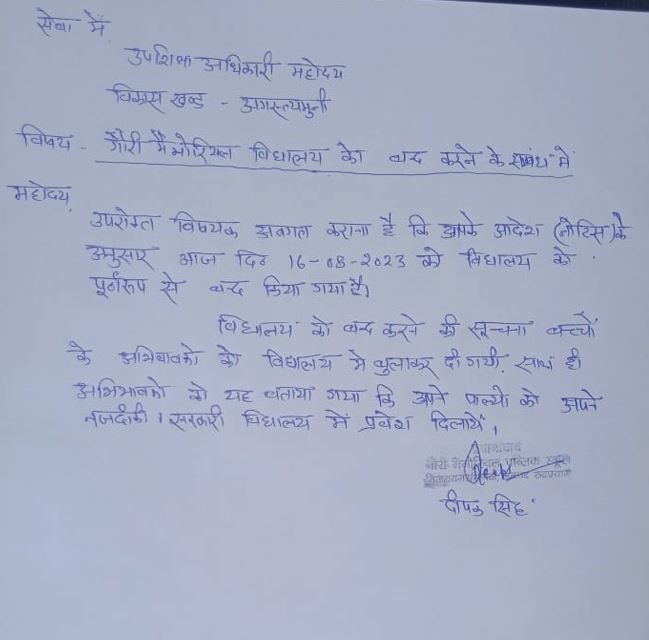 सेवा में,
उपशिक्षा अधिकारी महोदय
विकास खण्ड - अगस्त्यमुनी
विषय - गौरी मैमोरियल विद्यालय को बन्द करने के संबंध में
महोदय,
उपरोक्त विषयक अवगत कराना है कि आपके आदेश (नोटिस) के
अनुसार आज दिन 16-08-2023 को विद्यालय को
पूर्णरुप से बन्द किया गया है।
विद्यालय को बन्द करने की सूचना बच्चों
के अभिभावको को विद्यालय मे बुलाकर दी गयी, साथ ही
अभिभावको को यह बताया गया कि अपने पाल्यो को अपने
नजदीकी। सरकारी विद्यालय में प्रवेश दिलायें,
गौरी मैमोरियल पब्लिक स्कूल
दीपक सिंह